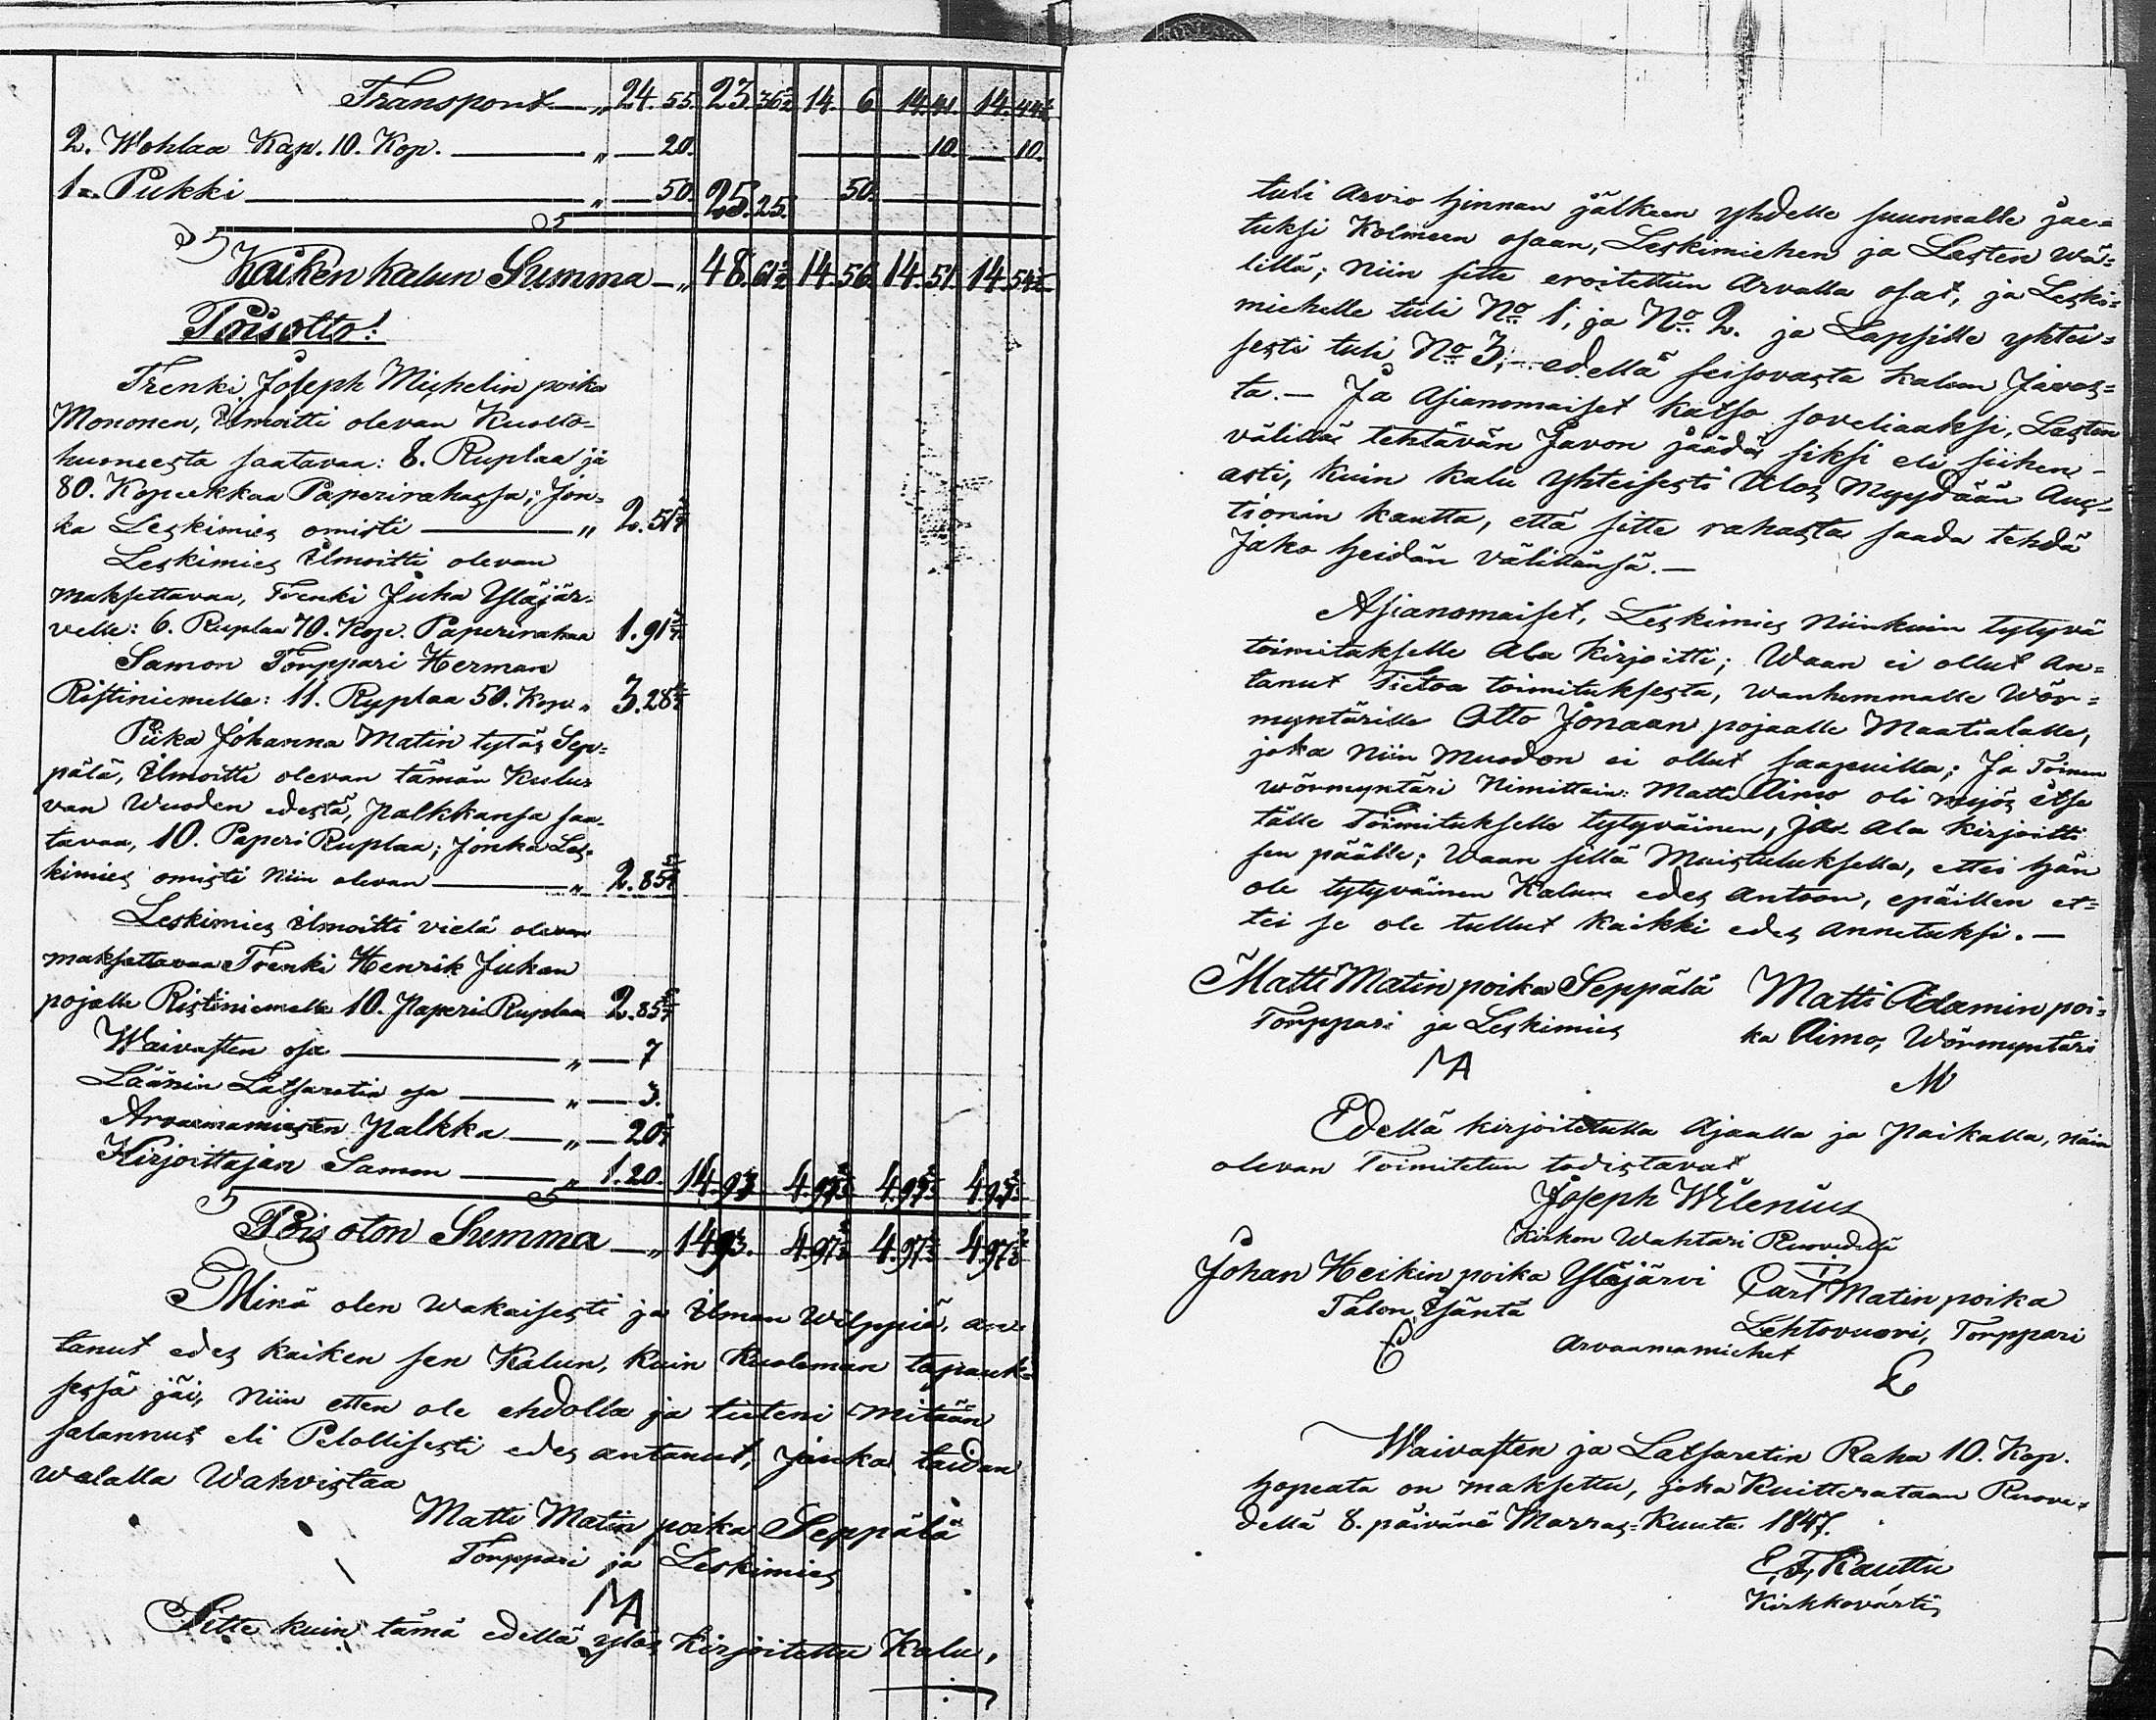 Transport — „ 24. 55. 23. 36½ 14. 6. 14. 41. 14. 44½
2. Wohlaa Kap. 10. Kop. — „ — 20. — 10. — 10.
1 Pukki — „ — 50. 25. 25. 50. —
Kaiken kalun Summa — „ 48. 61½ 14. 56. 14. 51. 14. 54½
Poisotto!
Trenki Joseph Michelin poika
Mononen, Ilmoitti olevan Kuollo-
huoneesta saatavaa: 8. Ruplaa ja
80. Kopeekkaa Paperirahassa; Jon=
ka Leskimies omisti — „ 2. 51 3/7
Leskimies Ilmoitti olevan
maksettavaa, Trenki Juha Yläjär-
velle: 6. Ruplaa 70. Kop. Paperirahaa 1. 91 3/7
Samon Torppari Herman
Ristiniemelle: 11. Ryplaa 50. Kop. „ 3. 28 4/7
Piika Johanna Matin tytär Sep=
pälä, Ilmoitti olevan tämän Kulu=
van Wuoden edestä, palkkansa saa-
tavaa, 10. Paperi Ruplaa; Jonka Les-
kimies omisti Niin olevan — „ 2. 85 5/7
Leskimies Ilmoitti vielä olevan
maksettavaa Trenki Henrik Juhan
pojalle Ristiniemelle 10. Paperi Ruplaa 2. 85 5/7
Waivasten osa — „ — 7
Läänin Latsaretin osa — „ — 3.
Arvaamamiesten Palkka — „ — 20
Kirjoittajan Samon — „ 1. 20. 14. 93 4. 97⅔ 4. 97⅔ 4. 97⅔
Pois oton Summa — „ 14. 93. 4. 97⅔ 4. 97⅔ 4. 97⅔
Minä olen Wakaisesti ja Ilman Wilppiä, an-
tanut edes kaiken sen Kalun, kuin Kuoleman tapauk=
sessa jäi, Niin etten ole ehdolla ja tieteni mitään
salannut eli Petollisesti edes antanut, jonka taidan
walalla Wahvistaa
Matti Matin poika Seppälä
Torppari ja Leskimies
MA
Sitte kuin tämä edellä ylös kirjoitettu Kalu,
tuli Arvio hinnan jälkeen yhdelle suunnalle jae=
tuksi Kolmeen osaan, Leskimiehen ja Lasten Wä=
lillä; Niin sitte eroitettiin Arvalla osat, ja Leski=
miehelle tuli No 1, ja No 2. ja Lapsille yhtei=
sesti tuli No 3, — edellä seisovasta kalun Javos=
ta. — Ja Asianomaiset katso soveliaaksi, Lasten
välillä tehtävän Javon jäädä siksi eli siihen -
asti, kuin kalu yhteisesti Ulos Myydään Auc-
tionin kautta, että sitte rahasta saada tehdä
Jako heidän välillänsä. —
Asianomaiset, Leskimies Niinkuin tytyvä
toimitukselle Ala kirjoitti; Waan ei ollut An=
tanut Tietoa toimituksesta, wanhemmalle Wör=
myntärille Otto Jonaan pojaalle Maatialalle,
joka Niin Muodon ei ollut saapuilla; Ja Toinen
wörmyntäri Nimittäin: Matti Aimo oli myös itse
tälle Toimitukselle tytyväinen, ja Ala kirjoitti
sen päälle; Waan sillä Muistutuksella, ettei hän
ole tytyväinen Kalun edes Antoon, epäillen et=
tei se ole tullut kaikki edes Annetuksi. —
Matti Matin poika Seppälä Matti Adamin poi=
Torppari ja Leskimies ka Aimo, Wörmyntäri
MA M
Edellä kirjoitetulla Ajaalla ja Paikalla, näin
olevan Toimitetun todistavat
Joseph Wilenius
Kirkon Wahtari Ruovedellä
Johan Heikin poika Yläjärvi Carl Matin poika
Talon Isäntä Lehtovuori, Torppari
Arvaamamiehet
Waivasten ja Latsaretin Raha 10. Kop.
hopeata on maksettu, joka Kuitterataan Ruove=
dellä 8. päivänä Marras=Kuuta 1847.
E. F. Kauttu
Kirkkovärti